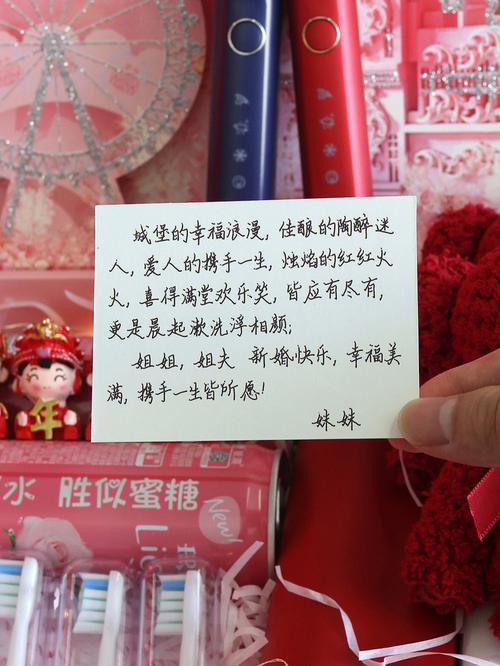 城堡的幸福浪漫，佳酿的陶醉迷
人，爱人的携手一生，烛焰的红红火
火，喜得满堂欢乐笑，皆应有尽有，
更是晨起漱洗浮相颜；
姐姐，姐夫 新婚快乐，幸福美
满，携手一生皆所愿！
妹妹
年
水 胜似蜜糖
New